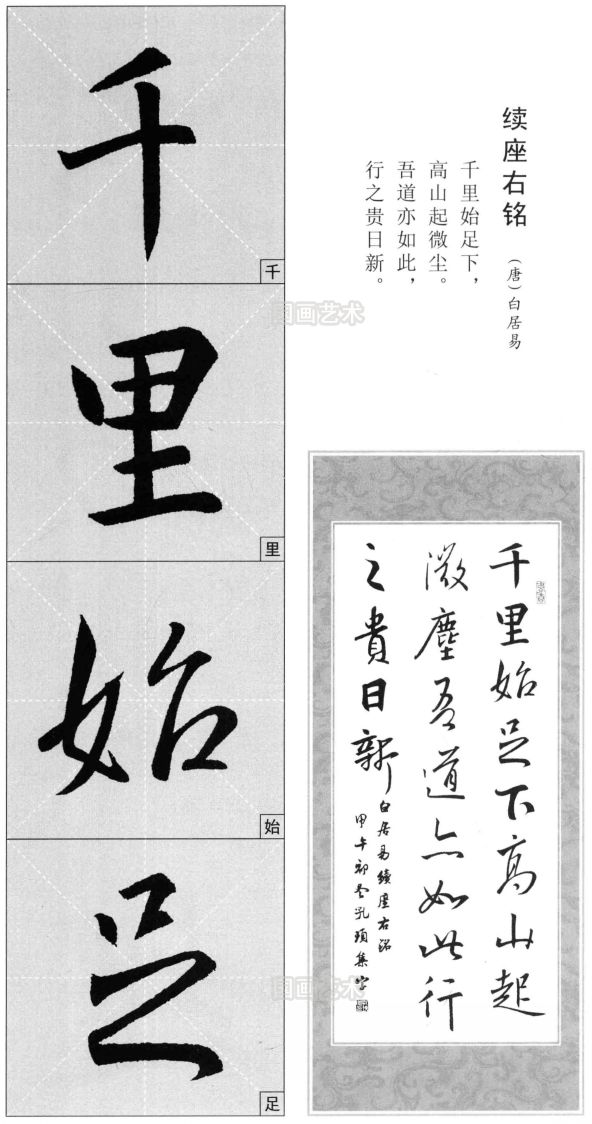 续座右铭
（唐）白居易
千里始足下，
高山起微尘。
吾道亦如此，
行之贵日新。
千
千
里
里
始
始
足
足
千里始足下高山起
微塵吾道亦如此行
之貴日新
白居易續座右銘
甲午初冬孔頊集字
国画艺术
国画艺术